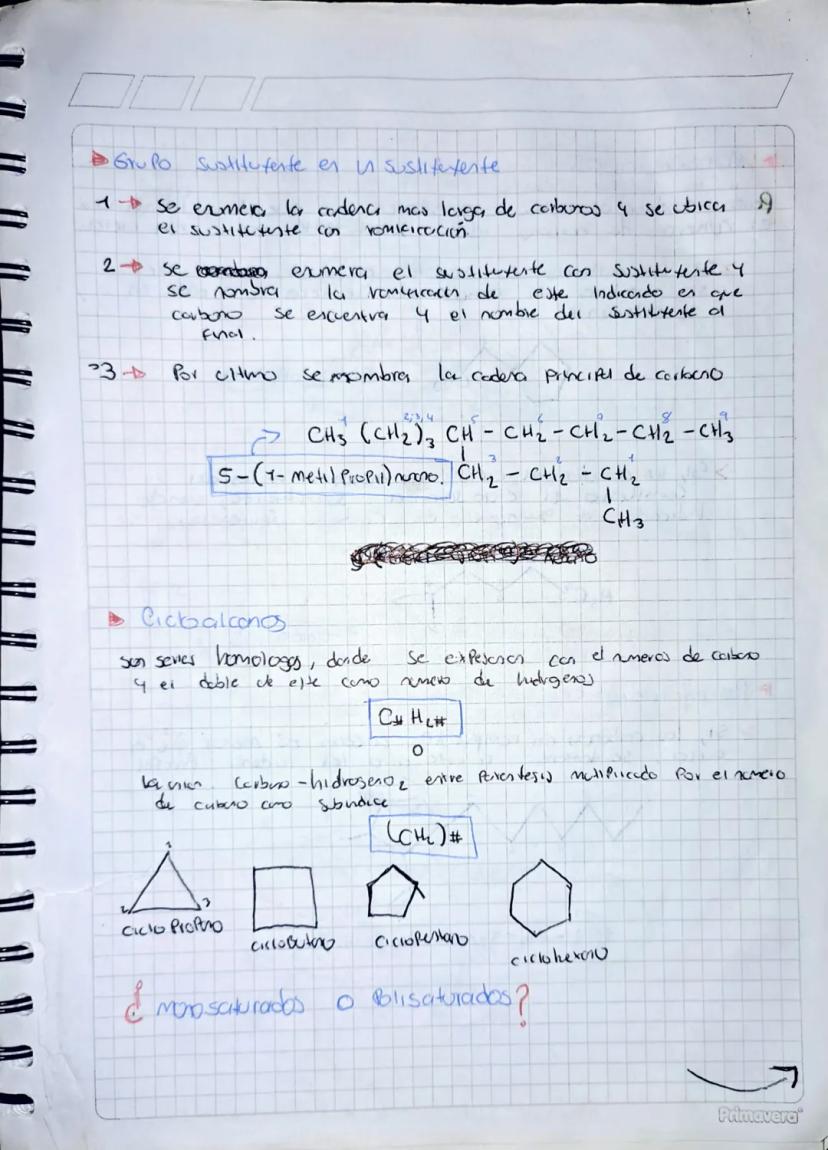 Grupo sustituyente en un sustituyente
1 → se enumera la cadena mas larga de carbonos y se ubica
el sustituyente con ramificación
2 → se enumera el sustituyente con sustituyente y
se nombra la ramificación de este indicando en que
carbono se encuentra y el nombre del sustituyente al
final.
3 → Por ultimo se nombra la cadena principal de carbono
1 2,3,4 5 6 7 8 9
CH3 (CH2)3 CH - CH2 - CH2 - CH2 - CH3
5-(1-metil propil) nonano. 3 2 1
CH2 - CH2 - CH2
CH3
Cicloalcanos
son series homologas, donde se expresan con el numeros de carbono
y el doble de este como numero de hidrogenos
C# H2#
o
la union carbono-hidrogeno2 entre parentesis multiplicado por el numero
de carbono como subindice
(CH2)#
1
2 3
ciclo Propano
cicloButano
cicloPentano
ciclohexano
¿ monosaturados o Polisaturados?
Primavera